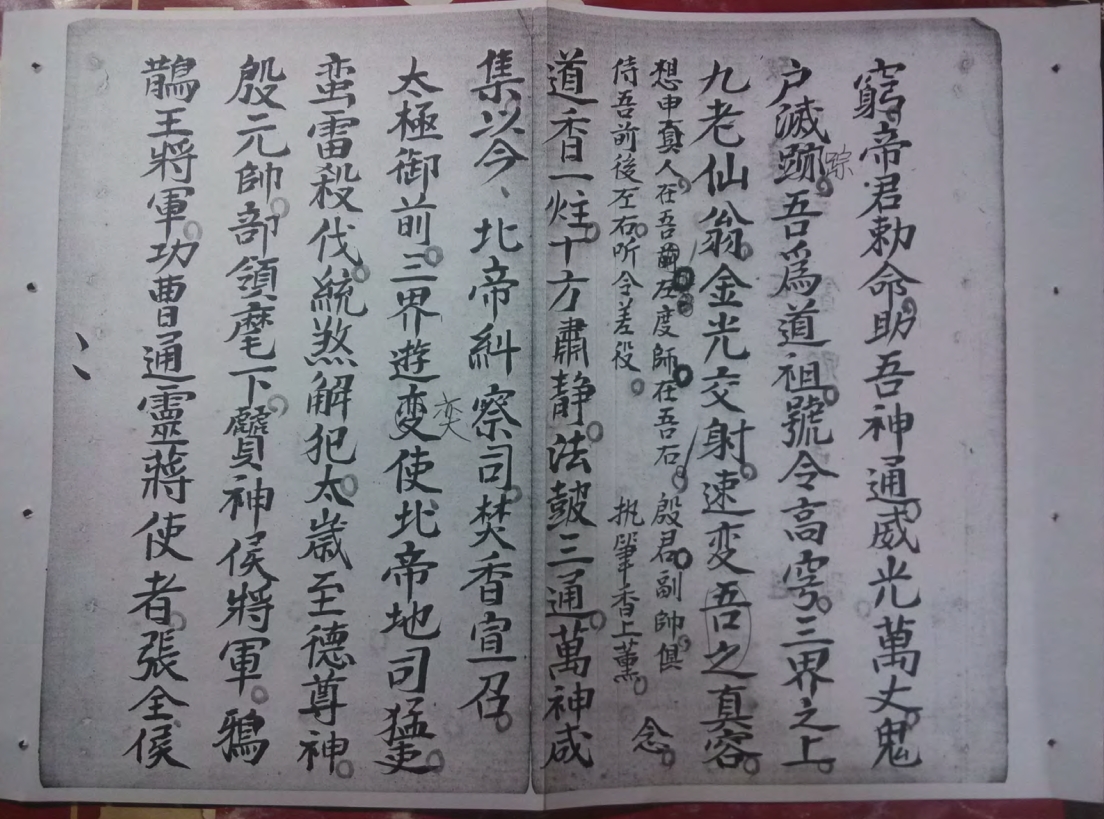 窮帝君勅命助吾神通威光萬丈鬼
户滅跡踪吾爲道祖號令高穹三界之上
九老仙翁金光交射速变吾之真容
想申真人在吾前左度師在吾右殷君副帥俱
侍吾前後左右听令差役執筆香上薰念
道香一炷十方肅静法皷三通萬神咸
集以今、北帝糾察司焚香宣召
太極御前三界遊变变使北帝地司猛吏
蛮雷殺伐統煞解犯太歲至德尊神
殷元帥部領麾下賢神侯將軍鴉
鵲王將軍功曹通靈蔣使者張全侯